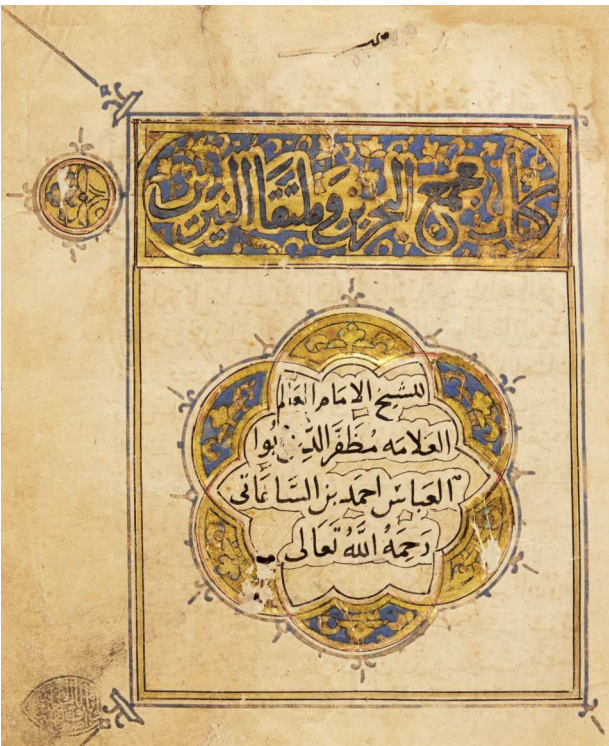 كتاب مجمع البحرين وملتقا النيرين
للشيخ الامام العالم
العلامه مظفر الدين بوا
العباس احمد بن الساعاتى
رحمه الله تعالى